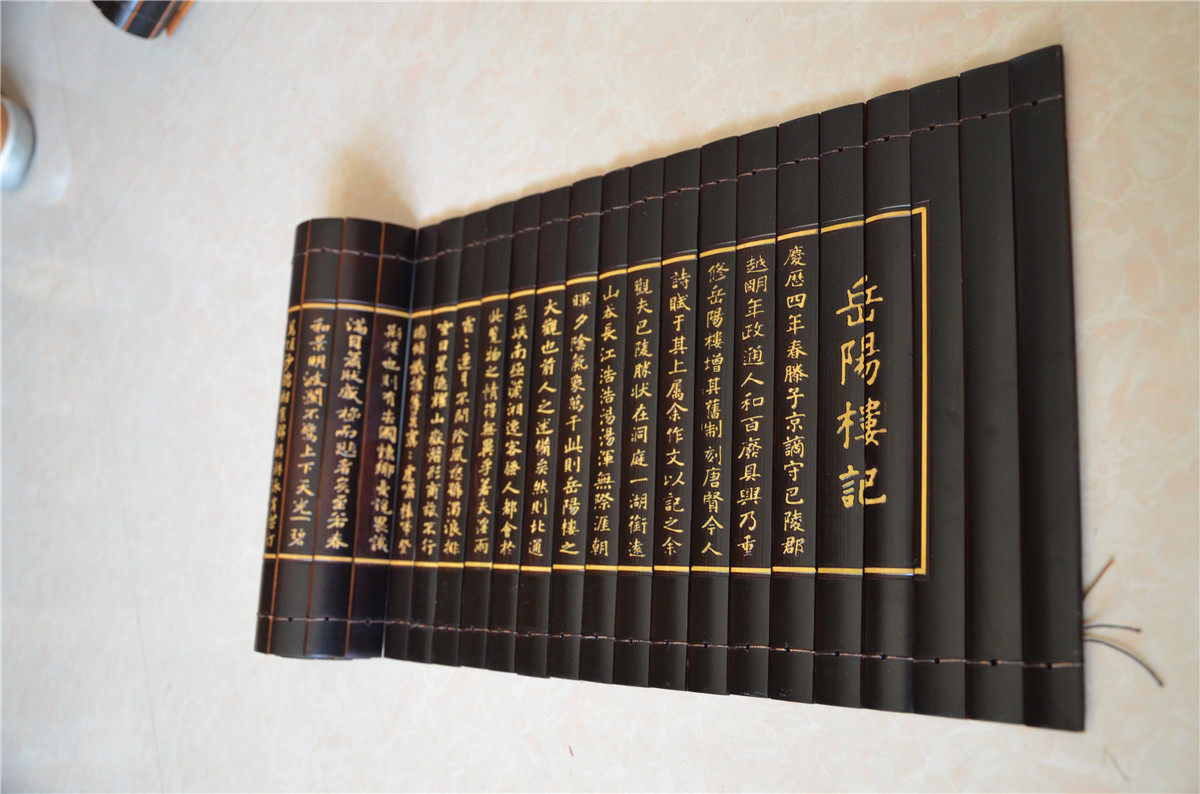 岳陽樓記
慶歷四年春滕子京謫守巴陵郡
越明年政通人和百廢具興乃重
修岳陽樓增其舊制刻唐賢今人
詩賦于其上属余作文以記之余
觀夫巴陵勝状在洞庭一湖銜遠
山吞長江浩浩湯湯渾無際涯朝
暉夕陰氣象萬千此則岳陽樓之
大觀也前人之述備矣然則北通
巫峽南極瀟湘遷客騷人都會於
此覽物之情得無異乎若夫淫雨
霏：連月不開陰風怒號濁浪排
空日星隱耀山嶽潛形商旅不行
檣傾楫摧薄暮冥：虎嘯猿啼登
斯樓也則有去國懷鄉憂讒畏譏
滿目蕭然感極而悲者矣至若春
和景明波瀾不驚上下天光一碧
萬頃沙鷗翔集錦鱗游泳岸芷汀